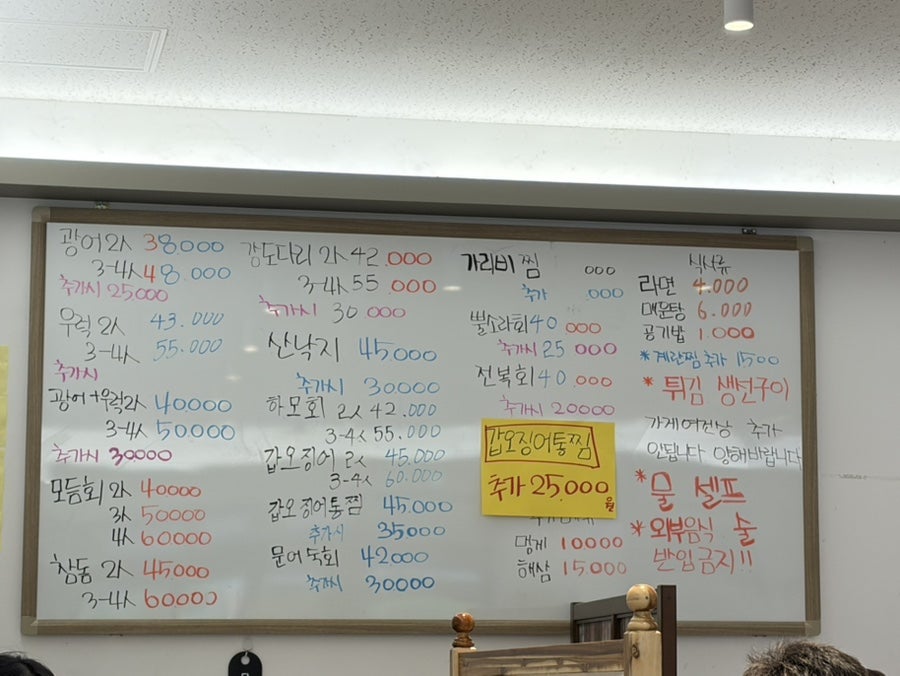 광어 2人 38.000
3-4人 48.000
추가시 25000
우럭 2人 43.000
3-4人 55.000
추가시
광어+우럭 2人 40000
3-4人 50000
추가시 30000
모듬회 2人 40000
3人 50000
4人 60000
참돔 2人 45000
3-4人 60000
강도다리 2人 42.000
3-4人 55.000
추가시 30000
산낙지 45000
추가시 30000
하모회 2人 42.000
3-4人 55.000
갑오징어 2人 45.000
3-4人 60.000
갑오징어통찜 45.000
추가시 35000
문어숙회 42000
추가시 30000
가리비찜 000
추가 .000
뿔소라회 40000
추가시 25000
전복회 40.000
추가시 20000
갑오징어통찜
추가 25.000원
멍게 10000
해삼 15.000
식사류
라면 4.000
매운탕 6.000
공기밥 1.000
*계란찜 추가 1500
* 튀김 생선구이
가게여건상 추가
안됩니다 양해바랍니다
* 물 셀프
* 외부음식 술
반입금지!!